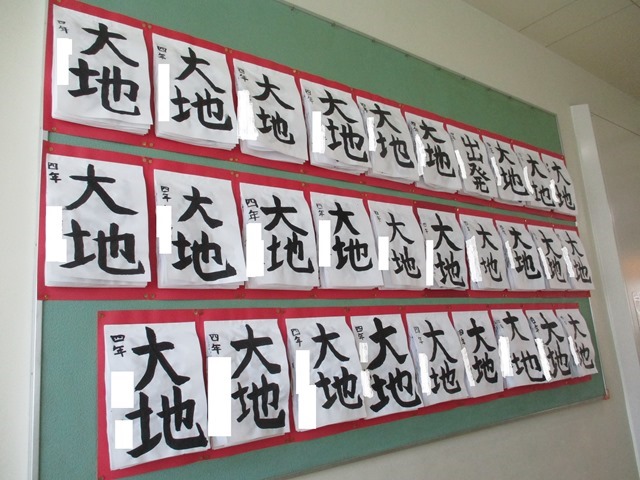 大地
四年
大地
四年
大地
四年
大地
四年
大地
大地
出発
大地
大地
大地
大地
四年
大地
四年
大地
四年
大地
四年
大地
大地
大地
大地
大地
大地
大地
四年
大地
四年
大地
四年
大地
四年
大地
四年
大地
大地
大地
大地